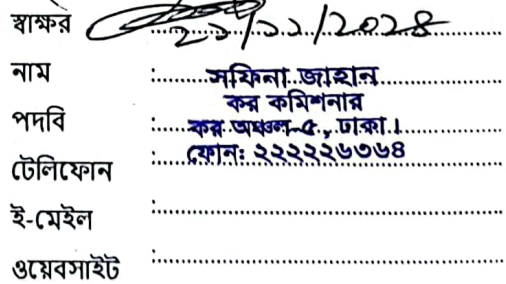 স্বাক্ষর ২১/১১/২০২৪
নাম : সফিনা জাহান
কর কমিশনার
পদবি : কর অঞ্চল-৫, ঢাকা।
টেলিফোন : ফোন: ২২২২২৬৩৬৪
ই-মেইল :
ওয়েবসাইট :